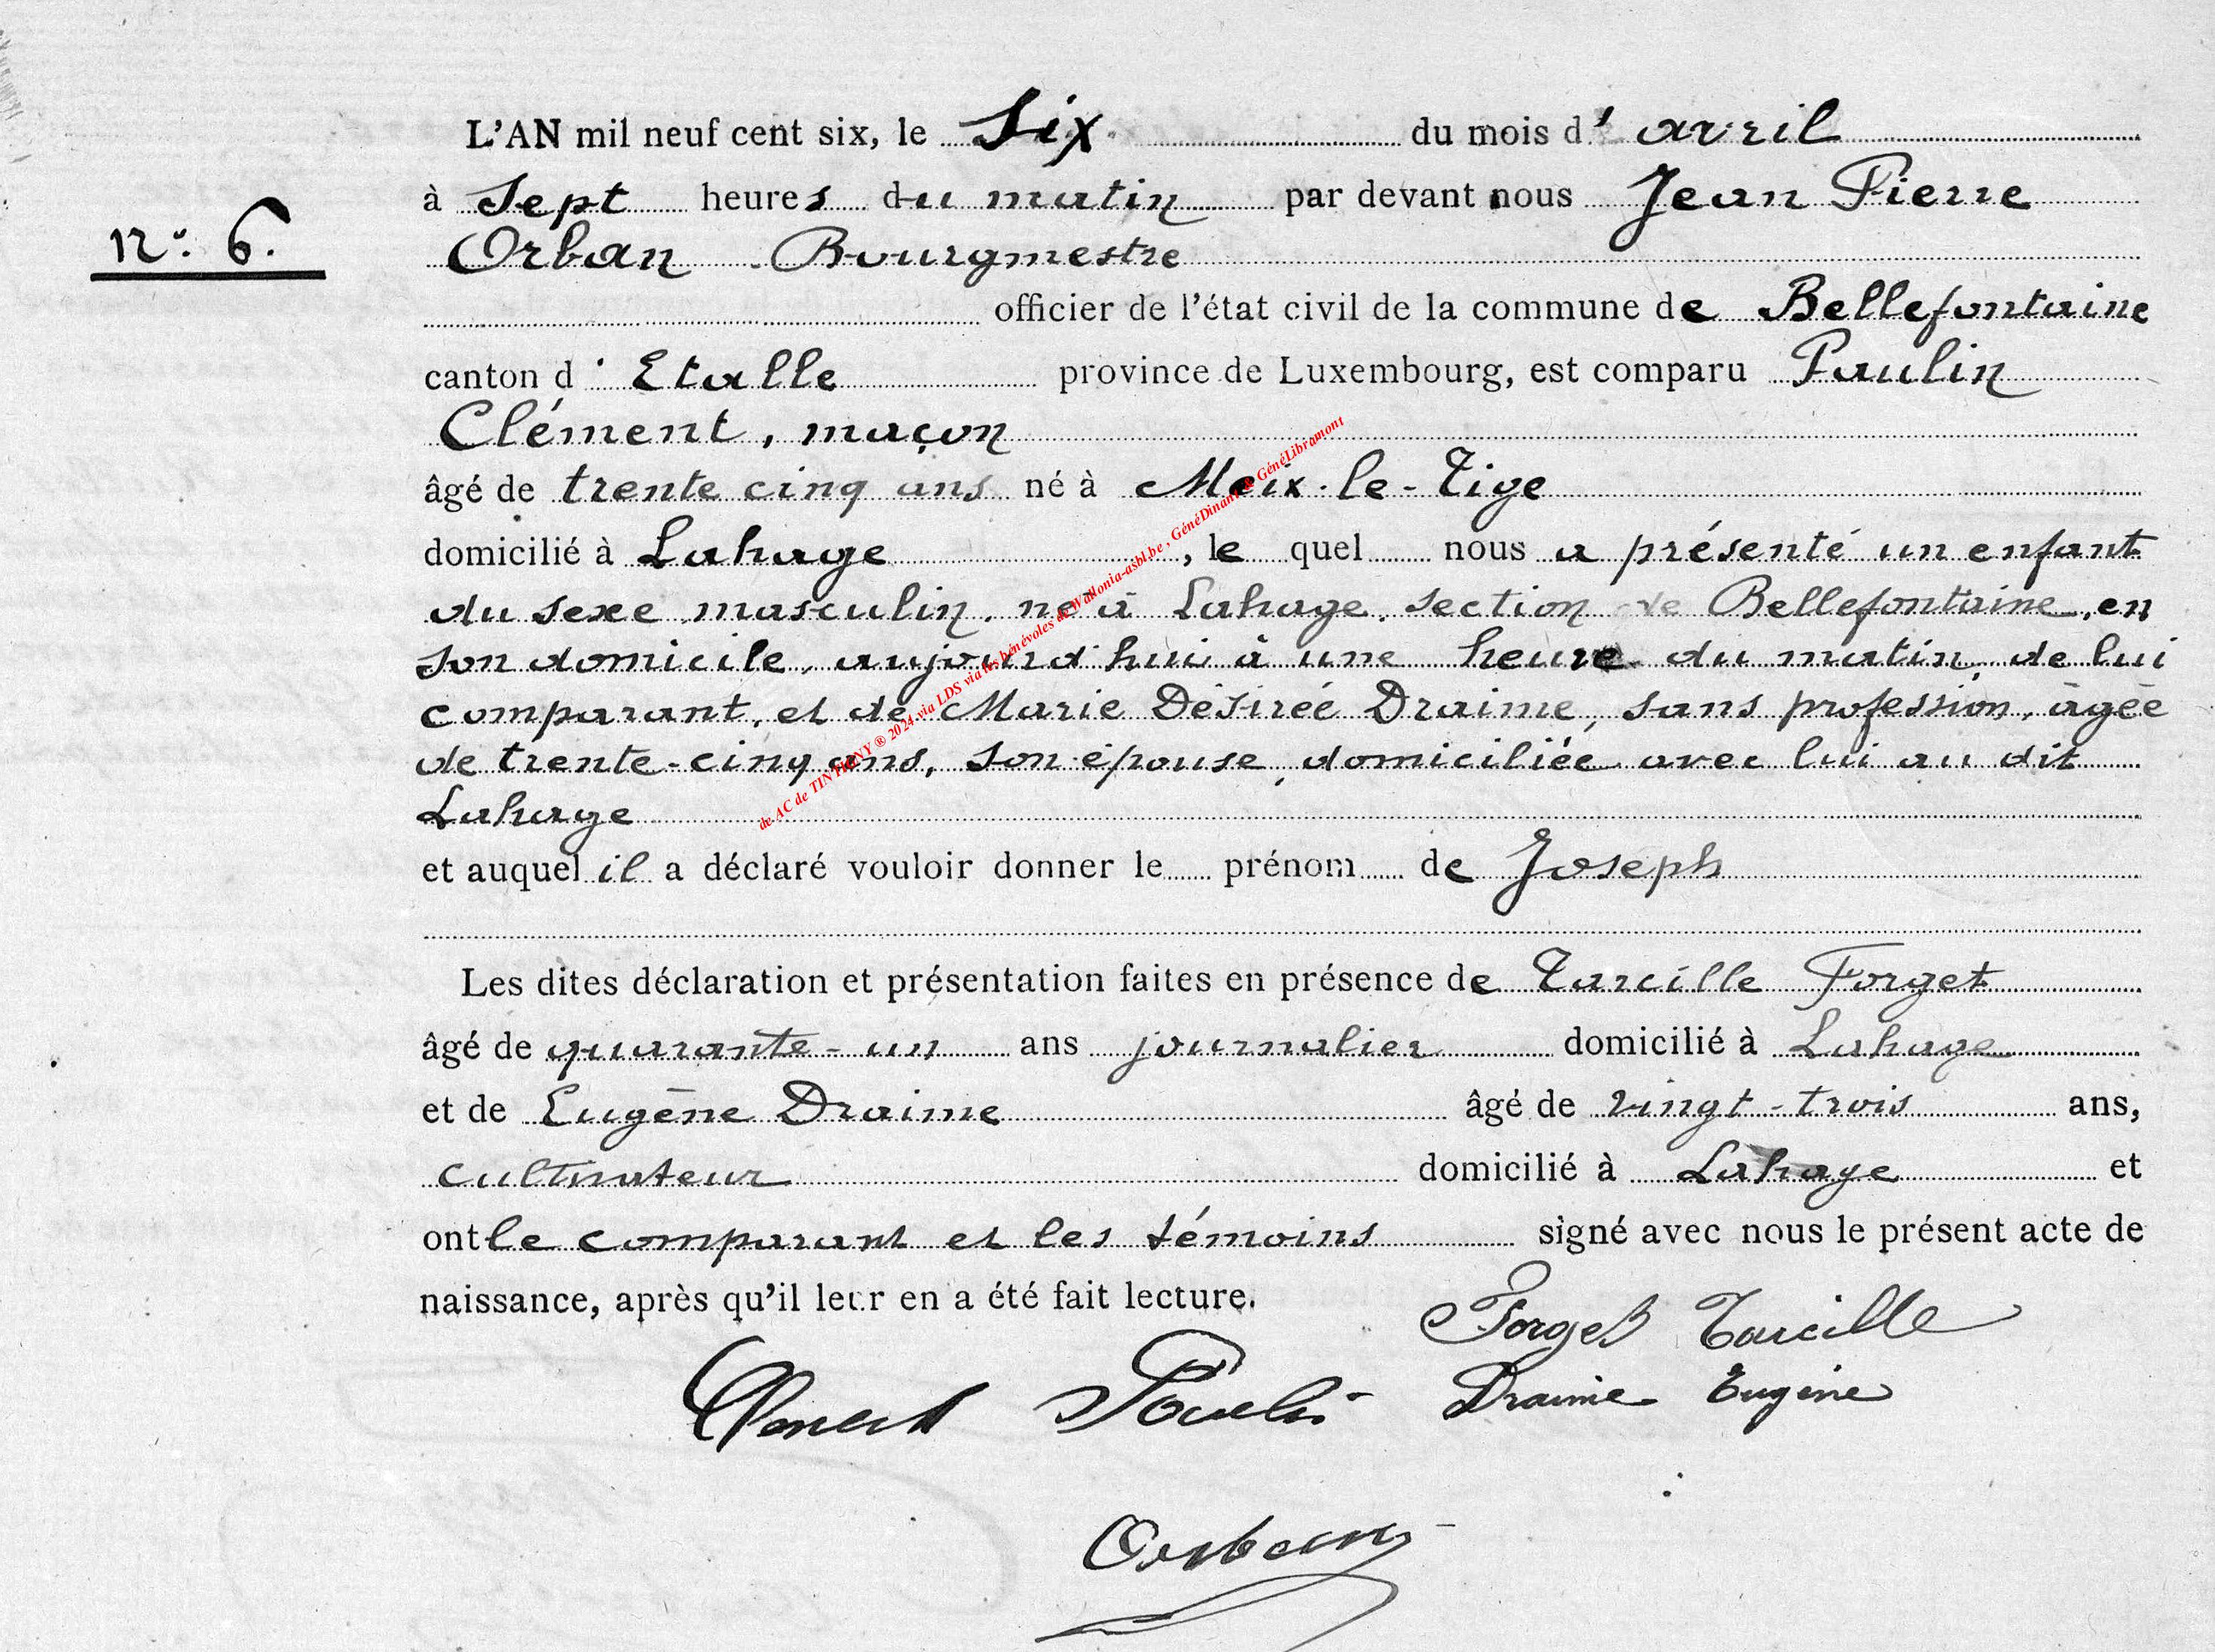 L'AN mil neuf cent six, le Six du mois d' avril
à Sept heures du matin par devant nous Jean Pierre
n° 6.
Orban Bourgmestre
officier de l'état civil de la commune de Bellefontaine
canton d' Etalle province de Luxembourg, est comparu Paulin
Clément, maçon
âgé de trente cinq ans né à Meix-le-Tige
domicilié à Lahage, le quel nous a présenté un enfant
du sexe masculin, né à Lahage, section de Bellefontaine, en
son domicile, aujourd'hui à une heure du matin, de lui
comparant, et de Marie Désirée Draime, sans profession, âgée
de trente-cinq ans, son épouse, domiciliée avec lui au dit
Lahage
et auquel il a déclaré vouloir donner le prénom de Joseph
Les dites déclaration et présentation faites en présence de Tarcille Forget
âgé de quarante-un ans journalier domicilié à Lahage
et de Eugène Draime âgé de vingt-trois ans,
cultivateur domicilié à Lahage et
ont le comparant et les témoins signé avec nous le présent acte de
naissance, après qu'il leur en a été fait lecture.
Forget Tarcille
Clément Paulin Draime Eugène
Orban
de AC de TINTIGNY ® 2024 via LDS via les bénévoles de Wallonia-asbl.be, GénéDinant & GénéLibramont